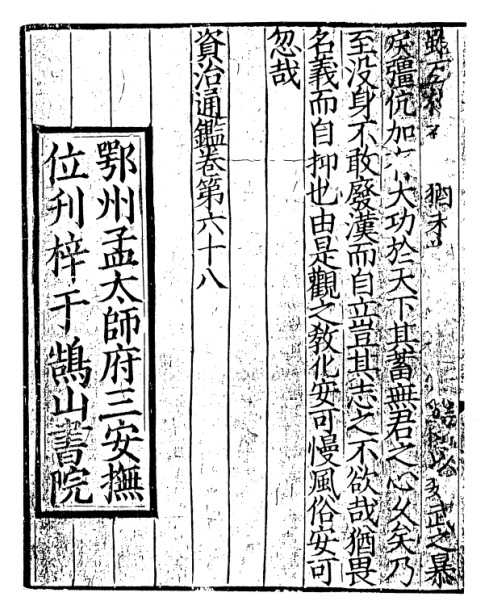 武之暴
戾彊伉加大功於天下其蓄無君之心久矣乃
至没身不敢廢漢而自立豈其志之不欲哉猶畏
名義而自抑也由是觀之教化安可慢風俗安可
忽哉
資治通鑑卷第六十八
鄂州孟太師府三安撫
位刋梓于鵠山書院